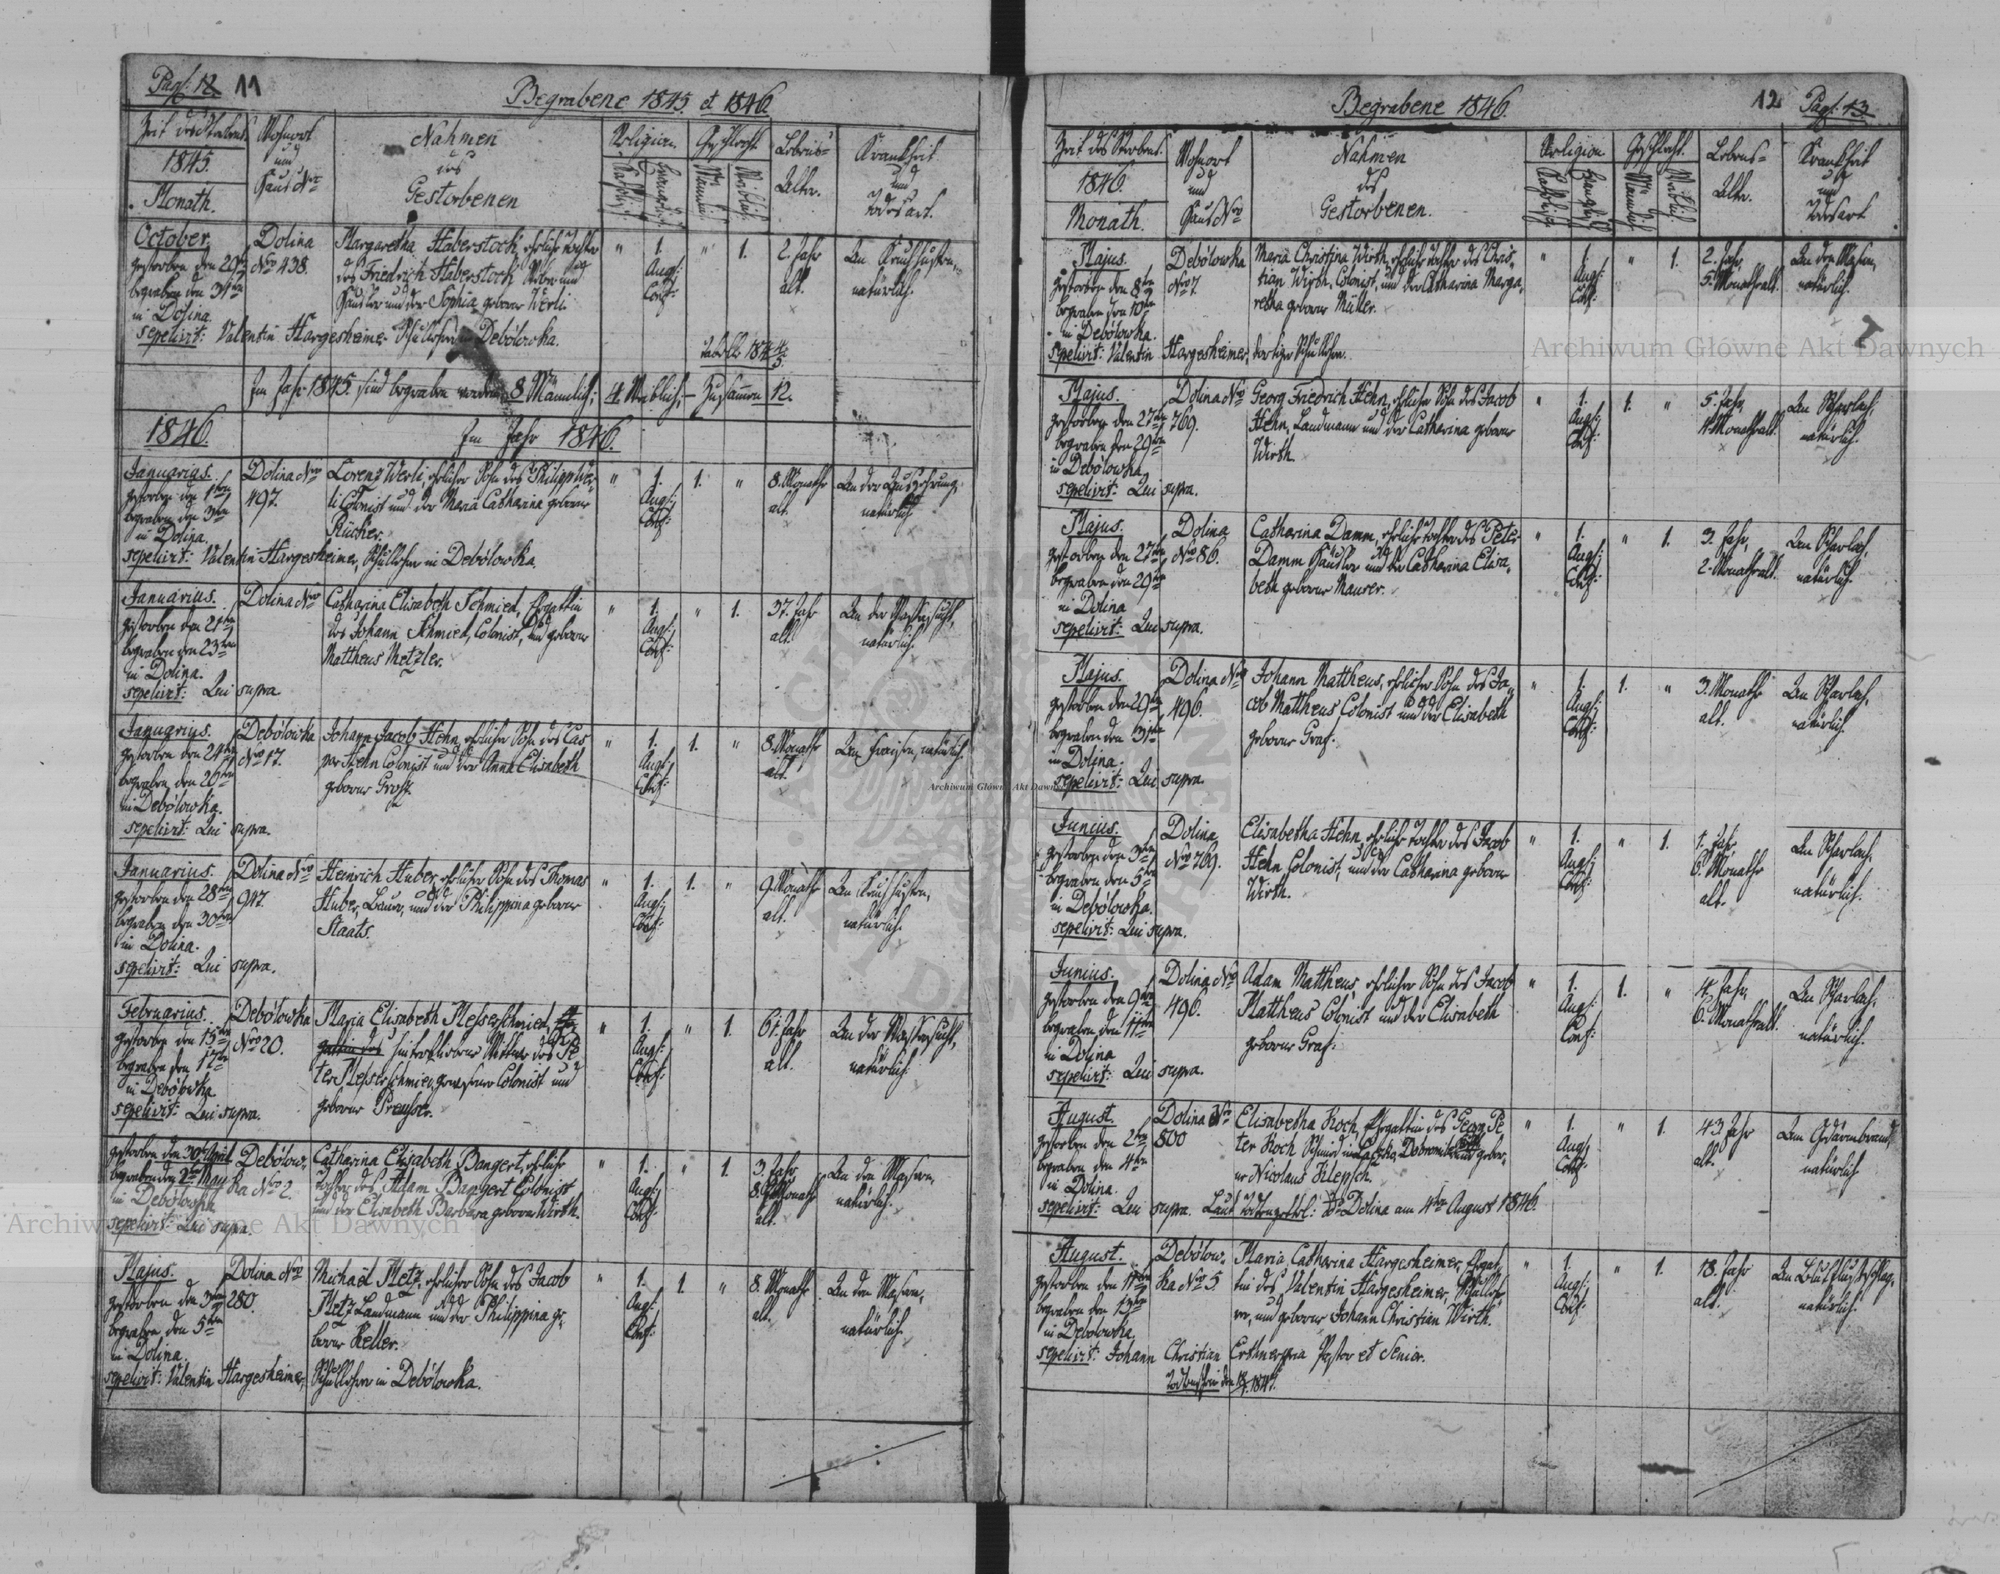 Pag: 12 11
Begrabene 1845 et 1846.
Zeit des Sterbens
1845.
Monath.
Wohnort
und
Haus Nro
Nahmen
des
Gestorbenen
Religion.
Katholisch
Evangelisch
Geschlecht
Männlich
Weiblich
Lebens-
Alter.
Krankheit
und
Todesart.
October.
gestorben den 29ten
begraben den 31ten
in Dolina.
Dolina
Nro 438.
Margaretha Haberstock, ehrliche Tochter
des Friedrich Haberstock Weber und
Häusler und der Sophia geborne Werli
" 1. " 1.
Augs:
Conf:
2. Jahr
alt.
Am Keuchhusten,
natürlich.
sepelivit: Valentin Hargesheimer Schullehrer in Debolowka.
Im Jahr 1845. sind begraben worden 8 Männlich; 4. Weiblich; – Zusammen 12.
1846.
Im Jahr 1846.
Januarius.
gestorben den 1ten
begraben den 3ten
in Dolina.
Dolina Nro
497.
Lorenz Werli, ehrlicher Sohn des Philipp Wer-
li Colonist und der Maria Catharina geborne
Rücker.
" 1. 1. "
Augs:
Conf:
8. Monathe
alt.
An der Auszehrung,
natürlich.
sepelivit: Valentin Hargesheimer, Schullehrer in Debolowka.
Januarius.
gestorben den 21ten
begraben den 23ten
in Dolina.
sepelivit: Qui supra.
Dolina Nro
Catharina Elisabeth Schmied, Ehgattin
des Johann Schmied, Colonist, und geborne
Mattheus Metzler.
" 1. " 1.
Augs:
Conf:
37. Jahr
alt.
An der Wassersucht,
natürlich.
Januarius.
gestorben den 24ten
begraben den 26ten
in Debolowka.
sepelivit: Qui supra.
Debolowka
Nro 17.
Johann Jacob Hehn, ehrlicher Sohn des Cas
par Hehn Colonist und der Anna Elisabeth
geborne Groß.
" 1. 1. "
Augs:
Conf:
8. Monathe
alt.
Am Fraisen, natürlich.
Januarius.
gestorben den 28ten
begraben den 30ten
in Dolina.
sepelivit: Qui supra.
Dolina Nro
947.
Heinrich Huber, ehrlicher Sohn des Thomas
Huber, Bauer, und der Philippina geborne
Staats.
" 1. 1. "
Augs:
Conf:
9. Monathe
alt.
Am Keuchhusten,
natürlich.
Februarius.
gestorben den 15ten
begraben den 17ten
in Debolowka
sepelivit: Qui supra.
Debolowka
Nro 20.
Maria Elisabeth Messerschmied, Eh-
gattin des hinterbliebene Wittwe des Pe
ter Messerschmied, gewesener Colonist und
geborne Preußer.
" 1. " 1.
Augs:
Conf:
61. Jahr
alt.
An der Wassersucht,
natürlich.
gestorben den 30ten April
begraben den 2ten May
in Debolowka
sepelivit: Qui supra.
Debolow-
ka Nro 2.
Catharina Elisabeth Bangert, ehrliche
Tochter des Adam Bangert Colonist
und der Elisabeth Barbara geborne Wirth.
" 1. " 1.
Augs:
Conf:
3. Jahr
8. Monathe
alt.
An den Masern,
natürlich.
Majus.
gestorben den 3ten
begraben den 5ten
in Dolina.
Dolina Nro
280.
Michael Metz, ehrlicher Sohn des Jacob
Metz Landmann und der Philippina ge-
borne Keller.
" 1. 1 "
Augs:
Conf:
8. Monathe
alt.
An den Masern,
natürlich.
sepelivit: Valentin Hargesheimer, Schullehrer in Debolowka.
Begrabene 1846.
12 Pag: 13.
Zeit des Sterbens.
1846.
Monath.
Wohnort
und
Haus Nro
Nahmen
des
Gestorbenen.
Religion
Katholisch
Evangelisch
Geschlecht.
Männlich
Weiblich
Lebens-
Alter.
Krankheit
und
Todesart
Majus.
gestorben den 8ten
begraben den 10ten
in Debolowka.
Debolowka
Nro 7.
Maria Christina Wirth, ehrliche Tochter des Chris-
tian Wirth, Colonist, und der Catharina Marga-
retha geborne Müller.
" 1. " 1.
Augs:
Conf:
2. Jahr,
5. Monath alt.
An den Masern,
natürlich.
sepelivit: Valentin Hargesheimer, dortiger Schullehrer.
Majus.
gestorben den 27ten
begraben den 29ten
in Debolowka
sepelivit: Qui supra.
Dolina Nro
769.
Georg Friedrich Hehn, ehrlicher Sohn des Jacob
Hehn, Landmann und der Catharina geborne
Wirth.
" 1. 1. "
Augs:
Conf:
5. Jahr,
Monath alt.
Am Scharlach,
natürlich.
Majus.
gestorben den 27ten
begraben den 29ten
in Dolina
sepelivit: Qui supra.
Dolina
Nro 86.
Catharina Damm, ehrliche Tochter des Peter
Damm Häusler und der Catharina Elisa-
beth geborne Maurer.
" 1. " 1.
Augs:
Conf:
3. Jahr,
2. Monath alt.
Am Scharlach,
natürlich.
Majus.
gestorben den 29ten
begraben den 31ten
in Dolina.
sepelivit: Qui supra.
Dolina Nro
496.
Johann Mattheus, ehrlicher Sohn des Ja-
cob Mattheus Colonist und der Elisabeth
geborne Graf.
" 1. 1. "
Augs:
Conf:
3. Monathe
alt.
Am Scharlach,
natürlich.
Junius.
gestorben den 3ten
begraben den 5ten
in Debolowka.
sepelivit: Qui supra.
Dolina
Nro 769.
Elisabetha Hehn, ehrliche Tochter des Jacob
Hehn Colonist, und der Catharina geborne
Wirth.
" 1. " 1.
Augs:
Conf:
1. Jahr
6. Monathe
alt.
Am Scharlach,
natürlich.
Junius.
gestorben den 9ten
begraben den 11ten
in Dolina
sepelivit: Qui supra.
Dolina Nro
496.
Adam Mattheus, ehrlicher Sohn des Jacob
Mattheus Colonist und der Elisabeth
geborne Graf.
" 1. 1. "
Augs:
Conf:
4. Jahr,
6. Monath alt.
Am Scharlach,
natürlich.
August.
gestorben den 2ten
begraben den 4ten
in Dolina.
Dolina Nro
800
Elisabetha Koch, Ehgattin des Georg Pe
ter Koch Schmied in und gebor-
ne Nicolaus Klepsch.
" 1. " 1.
Augs:
Conf:
43 Jahr
alt.
Am Gedärmbrand,
natürlich
sepelivit: Qui supra. Laut Todtenzettel: Dolina am 4ten August 1846.
August.
gestorben den 11ten
begraben den 13ten
in Debolowka.
Debolow-
ka Nro 5
Maria Catharina Hargesheimer, Ehgat-
tin des Valentin Hargesheimer, Schulleh-
rer, und geborne Johann Christian Wirth.
" 1. " 1.
Augs:
Conf:
18. Jahr
alt.
Am Blutflußschlag,
natürlich.
sepelivit: Johann Christian pria Pastor et Senior.
1847.
Archiwum Główne Akt Dawnych
Archiwum Główne Akt Dawnych
Archiwum Główne Akt Dawnych